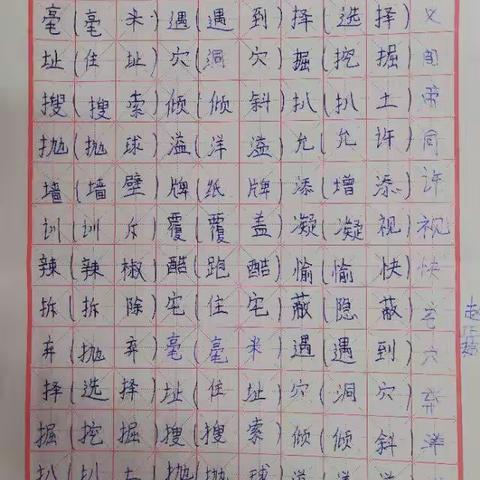 毫(毫米)遇(遇到)择(选择)义
址(住址)穴(洞穴)掘(挖掘)
搜(搜索)倾(倾斜)扒(扒土)带
抛(抛球)溢(洋溢)允(允许)同
墙(墙壁)牌(纸牌)添(增添)许
训(训斥)覆(覆盖)凝(凝视)视
辣(辣椒)酷(跑酷)愉(愉快)快
拆(拆除)宅(住宅)蔽(隐蔽)宅
弃(抛弃)毫(毫米)遇(遇到)穴
择(选择)址(住址)穴(洞穴)弃
掘(挖掘)搜(搜索)倾(倾斜)洋
扒(扒土)抛(抛球)溢(洋溢